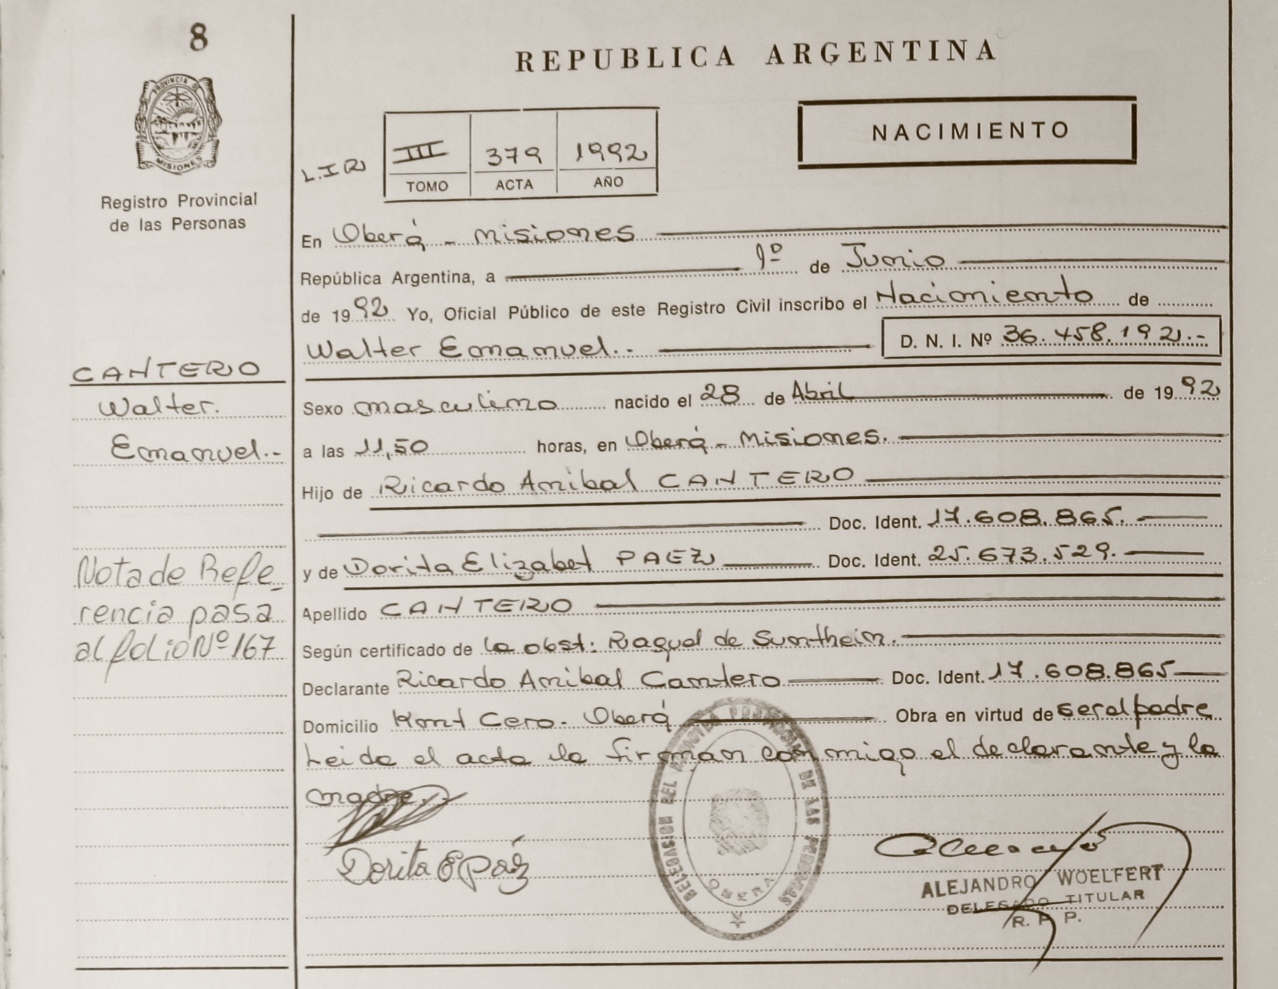 8
REPUBLICA ARGENTINA
PROVINCIA DE
MISIONES
Registro Provincial
de las Personas
NACIMIENTO
L.I.R
III 379 1992
TOMO ACTA AÑO
En Oberá - Misiones
República Argentina, a 1º de Junio
de 1992 Yo, Oficial Público de este Registro Civil inscribo el Nacimiento de
Walter Emanuel.- D. N. I. Nº 36.458.192.-
CANTERO
Walter.
Emanuel.-
Sexo masculino nacido el 28 de Abril de 1992
a las 11,50 horas, en Oberá - Misiones.
Hijo de Ricardo Anibal CANTERO
Doc. Ident. 17.608.865.
y de Dorita Elizabet PAEZ Doc. Ident. 25.673.529.
Nota de Refe-
rencia pasa
al folio Nº 167
Apellido CANTERO
Según certificado de la obst: Raquel de Suntheim.
Declarante Ricardo Anibal Cantero Doc. Ident. 17.608.865
Domicilio Kont Cero - Oberá Obra en virtud de ser al padre
Leida el acta la firman conmigo el declarante y la
madre.
Dorita E Paéz
DELEGACION DEL REGISTRO PROVINCIAL DE LAS PERSONAS
OBERA
ALEJANDRO WOELFERT
DELEGADO TITULAR
R. P. P.